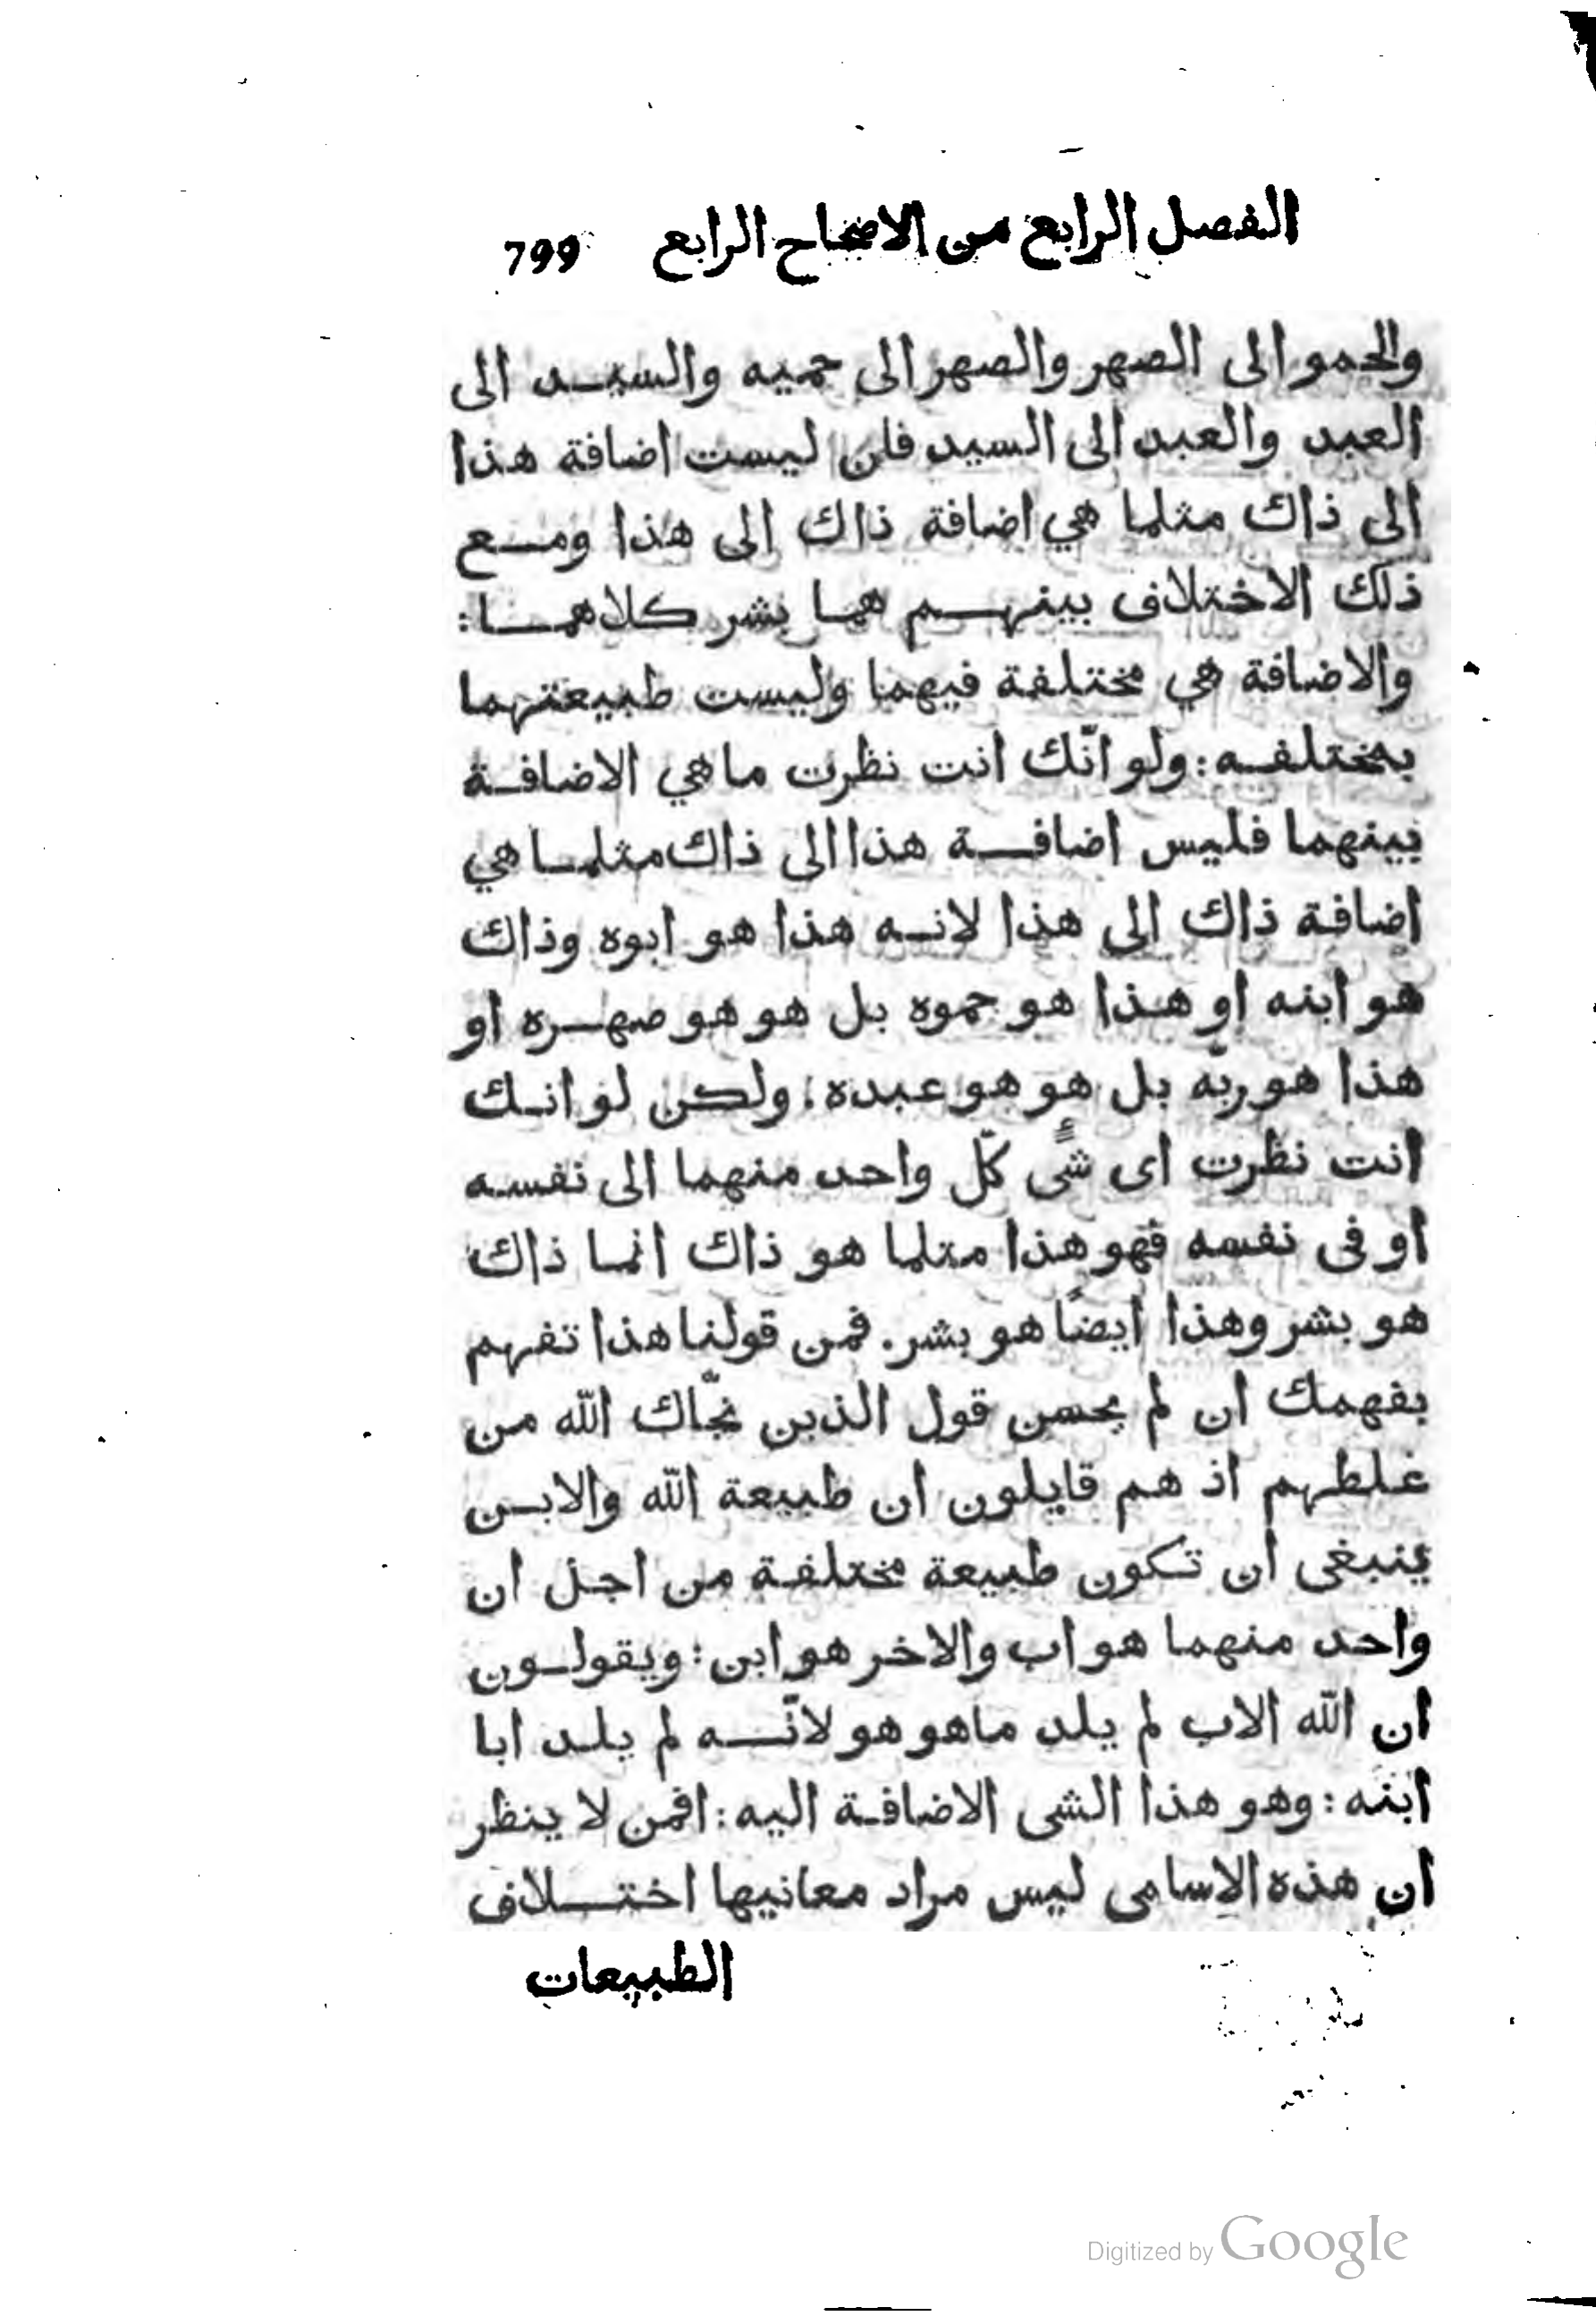 الفصل الرابع من الاصحاح الرابع 799
والحمو الى الصهر والصهر الى حميه والسيد الى
العبد والعبد الى السيد فان ليست اضافة هذا
الى ذاك مثلما هي اضافة ذاك الى هذا ومع
ذلك الاختلاف بينهم هما بشر كلاهما:
والاضافة هي مختلفة فيهما وليست طبيعتهما
بمختلفه: ولو انّك انت نظرت ما هي الاضافة
بينهما فليس اضافة هذا الى ذاك مثلما هي
اضافة ذاك الى هذا لانه هذا هو ابوه وذاك
هو ابنه او هذا هو حموه بل هو هو صهره او
هذا هو ربّه بل هو هو عبده: ولكن لو انك
انت نظرت اى شًى كلّ واحد منهما الى نفسه
او فى نفسه فهو هذا مثلما هو ذاك انما ذاك
هو بشر وهذا ايضًا هو بشر. فمن قولنا هذا تفهم
بفهمك ان لم يحسن قول الذين نجّاك الله من
غلطهم اذ هم قايلون ان طبيعة الله والابن
ينبغى ان تكون طبيعة مختلفة من اجل ان
واحد منهما هو اب والاخر هو ابن: ويقولون
ان الله الاب لم يلد ما هو هو لانّه لم يلد ابا
ابنه: وهو هذا الشى الاضافة اليه: افمن لا ينظر
ان هذه الاسامى ليس مراد معانيها اختلاف
الطبيعات
Digitized by Google